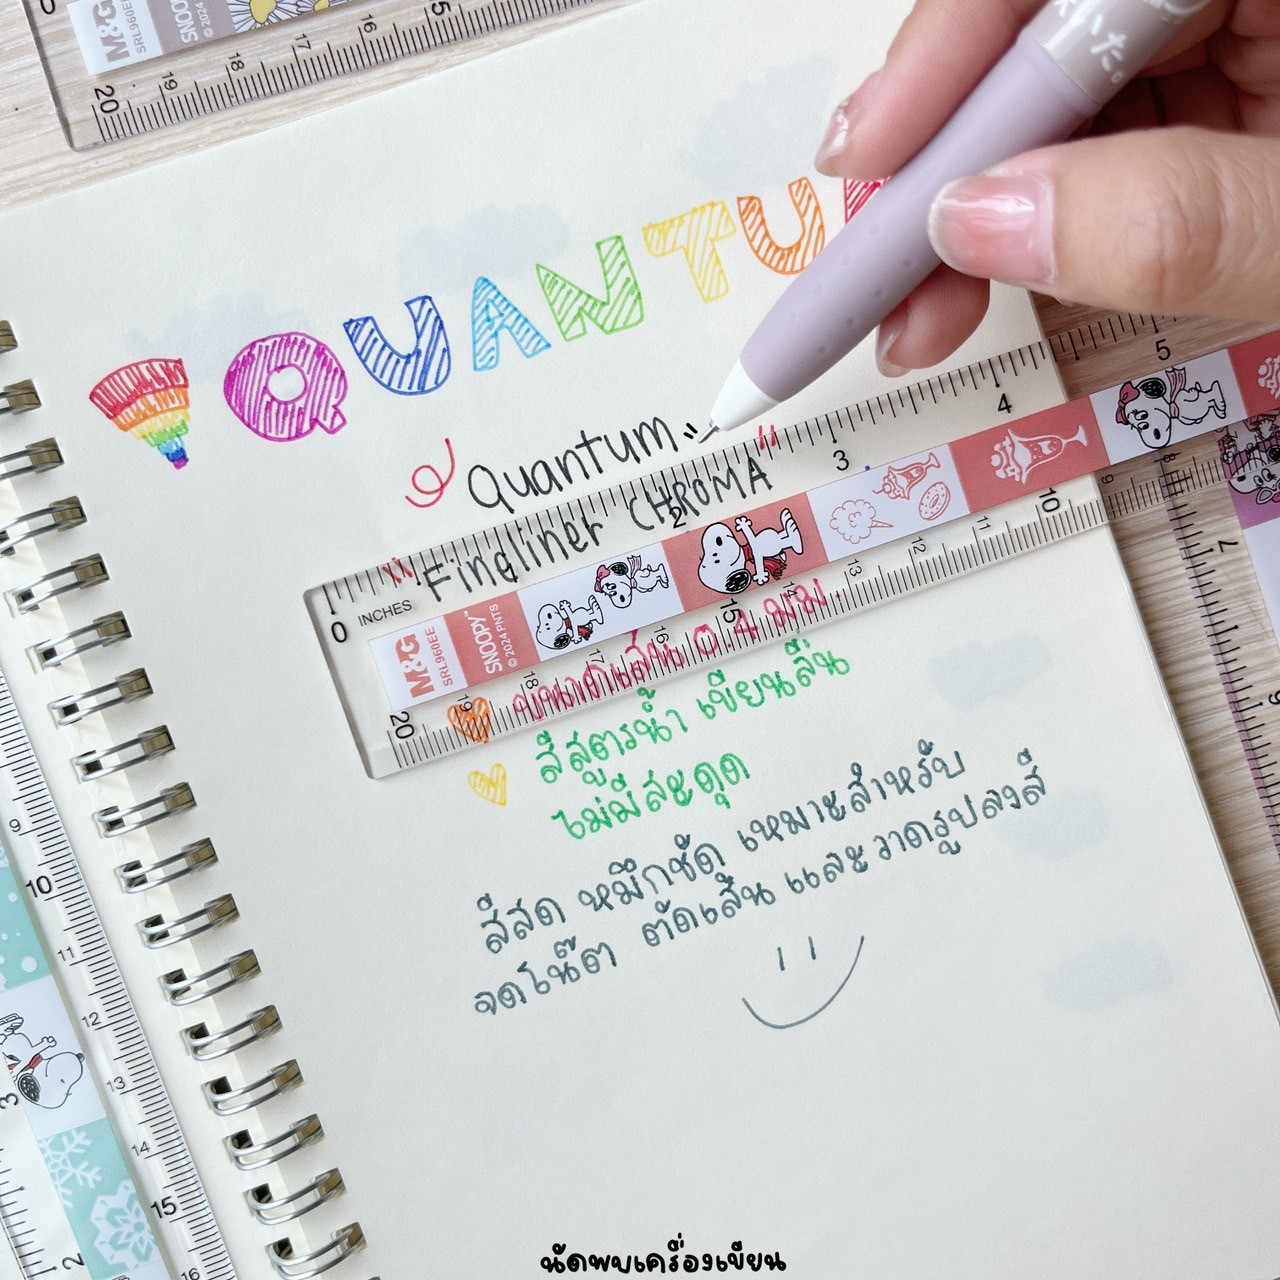 M&G
SRL960EE
SNOOPY
© 2024
20 19 18 17 16 15
いた。
QUANTU
Quantum
Fineliner CHROMA
0 INCHES 2 3 4 5
M&G
SRL960EE
SNOOPY™
© 2024 PNTS
20 19 18 17 16 15 14 13 12 11 10 9 8
ขนาดเส้น 0.4 มม.
สีสูตรน้ำ เขียนลื่น
ไม่มีสะดุด
สีสด หมึกชัด เหมาะสำหรับ
จดโน๊ต ตัดเส้น และวาดรูปลงสี
9 10 11 12 13 14 15 16
3 2
7
นัดพบเครื่องเขียน